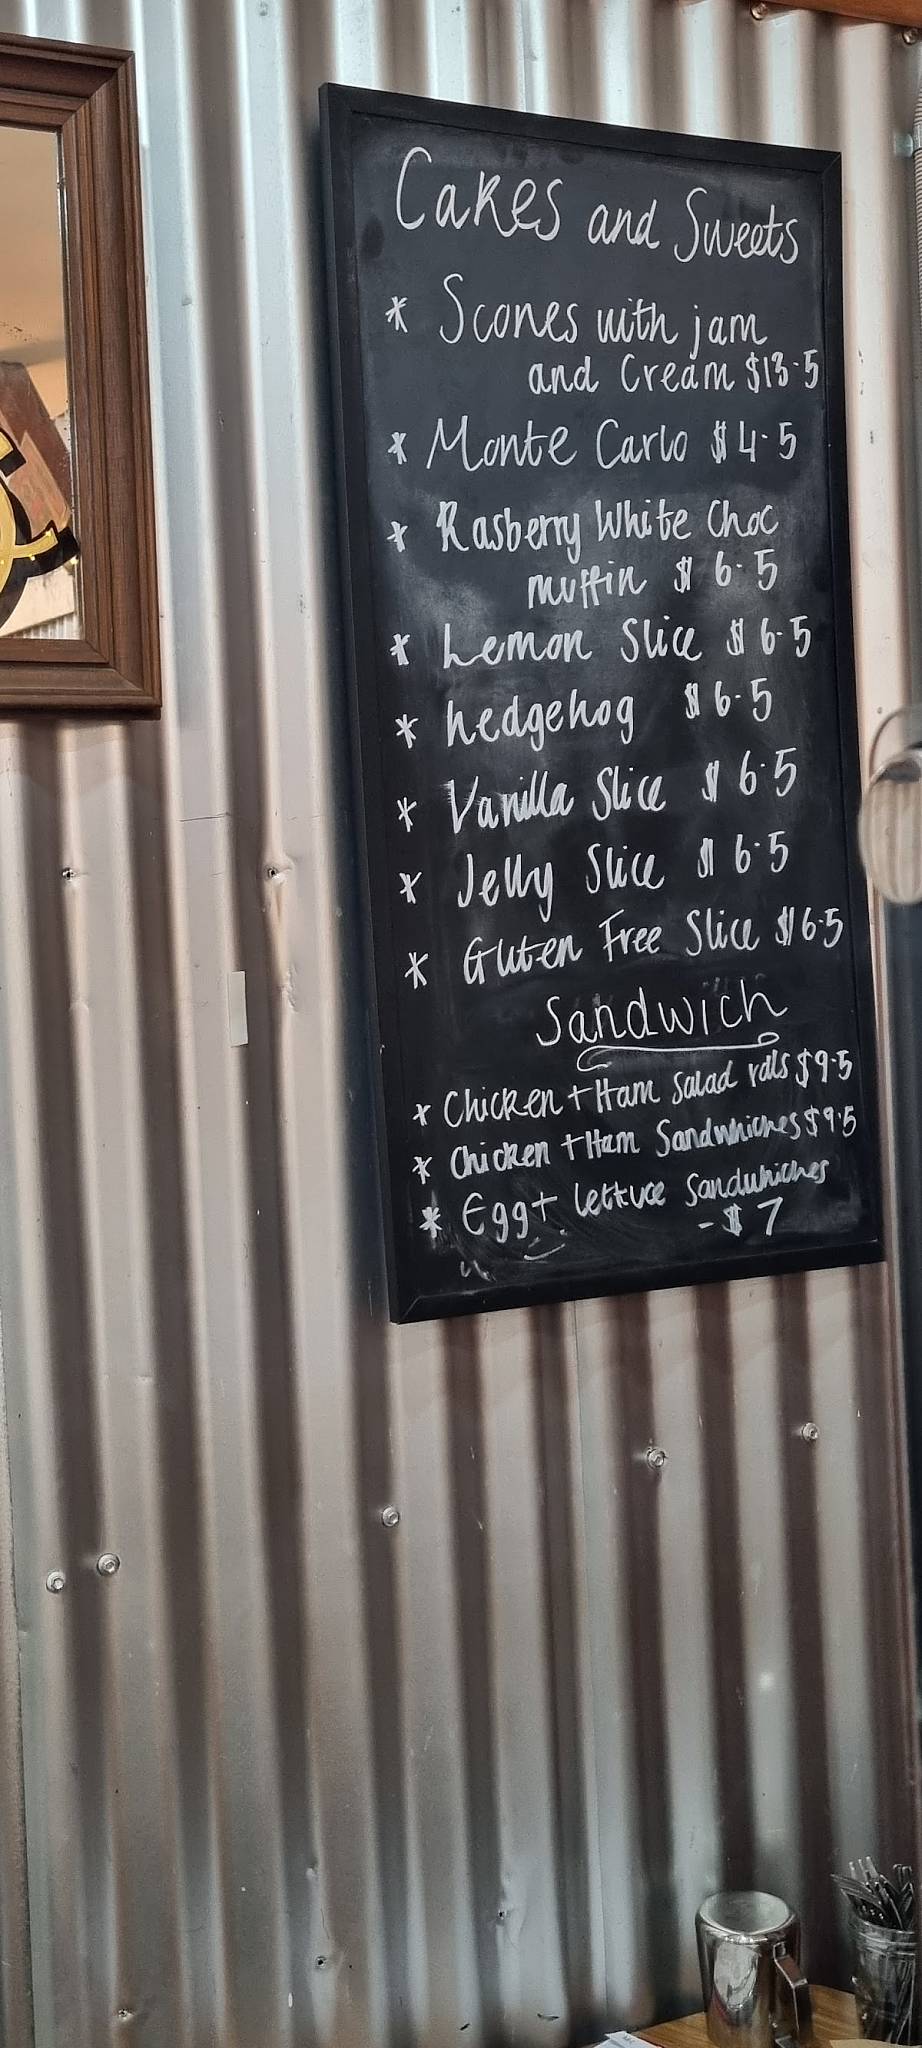 Cakes and Sweets
* Scones with jam
and Cream $13.5
* Monte Carlo $4.5
* Rasberry White Choc
muffin $6.5
* Lemon Slice $6.5
* hedgehog $6.5
* Vanilla Slice $6.5
* Jelly Slice $6.5
* Gluten Free Slice $6.5
Sandwich
* Chicken + Ham Salad rolls $9.5
* Chicken + Ham Sandwhiches $9.5
* Egg + lettuce Sandwhiches
- $7